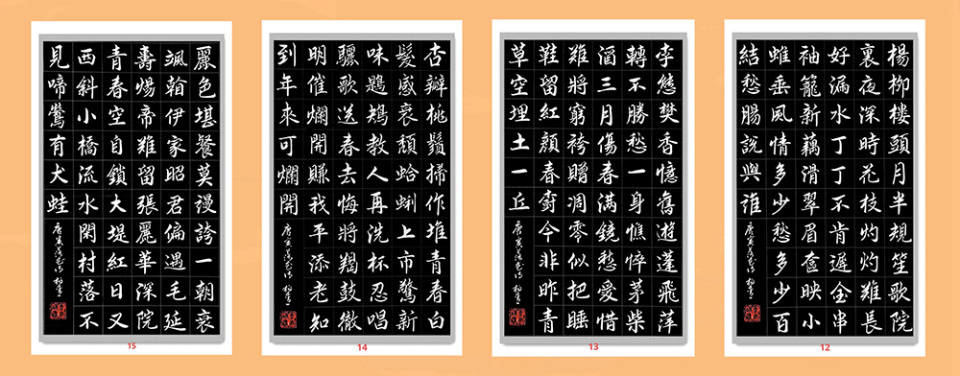 楊柳樓頭月半規笙歌院
裏夜深時花枝灼灼難長
好漏水丁丁不肯遲金串
袖籠新藕滑翠眉奩映小
蛾垂風情多少愁多少百
結愁腸說與誰
12
李態樊香憶舊遊蓬飛萍
轉不勝愁一身憔悴茅柴
酒三月傷春滿鏡愁愛惜
難將窮袴贈凋零似把睡
鞋留紅顏春樹今非昨青
草空埋土一丘
13
杏瓣桃鬚掃作堆青春白
髮感衰頹蛤蜊上市驚新
味鶗鴂教人再洗杯忍唱
驪歌送春去悔將羯鼓徹
明催爛開賺我平添老知
到年來可爛開
14
麗色堪餐莫謾誇一朝衰
颯翰伊家昭君偏遇毛延
壽煬帝難留張麗華深院
青春空自鎖大堤紅日又
西斜小橋流水閑村落不
見啼鶯有犬蛙
15